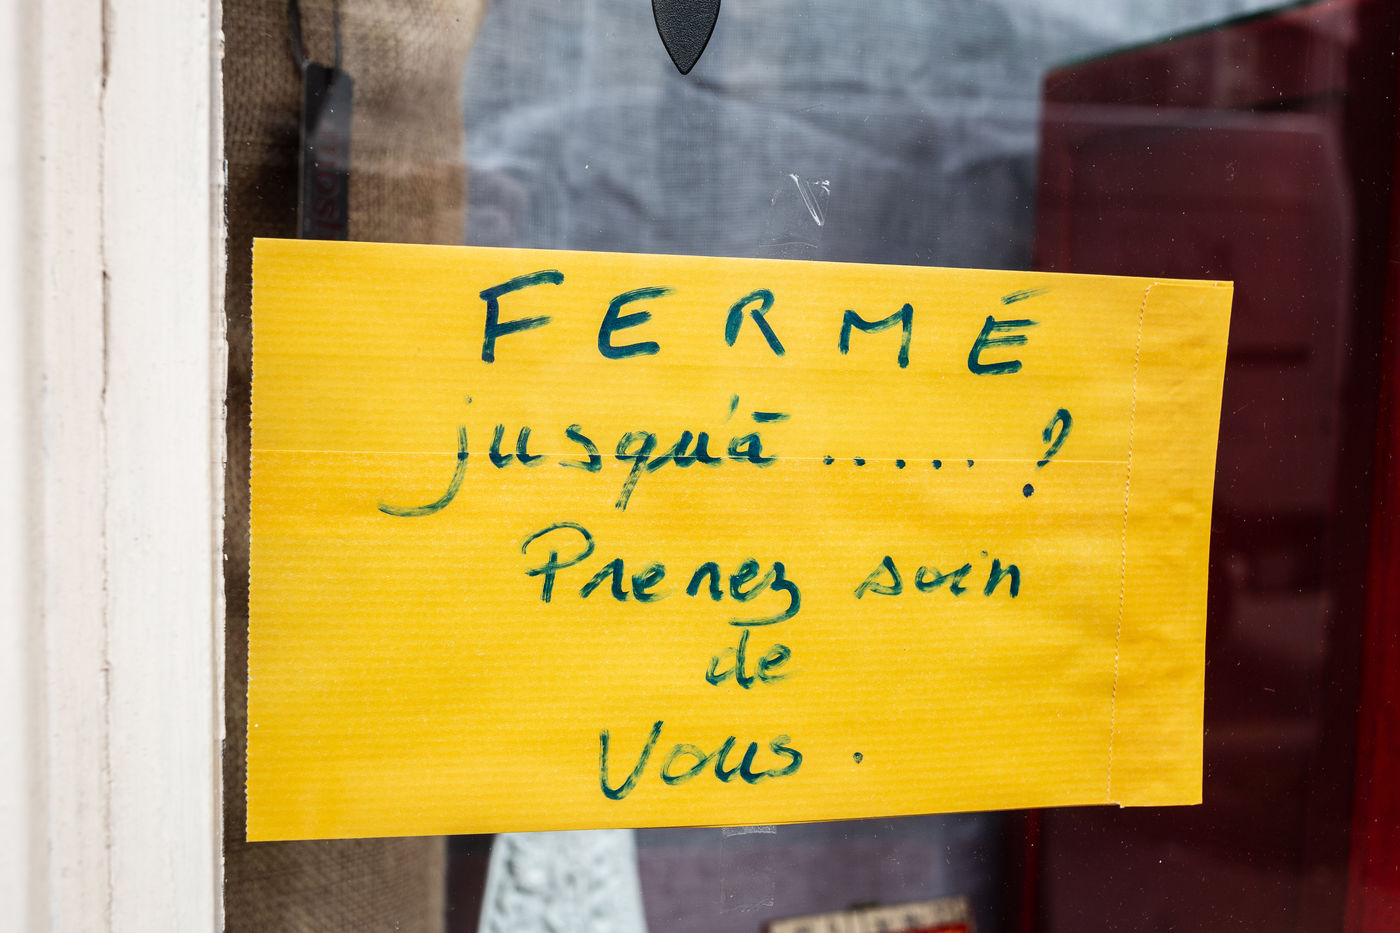 FERMÉ
jusqu'à ..... ?
Prenez soin
de
Vous .